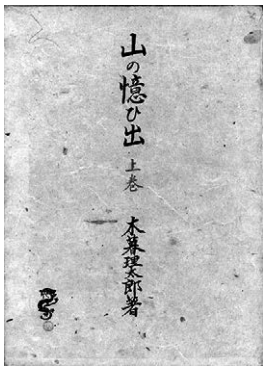 山の憶ひ出 上巻
木暮理太郎著